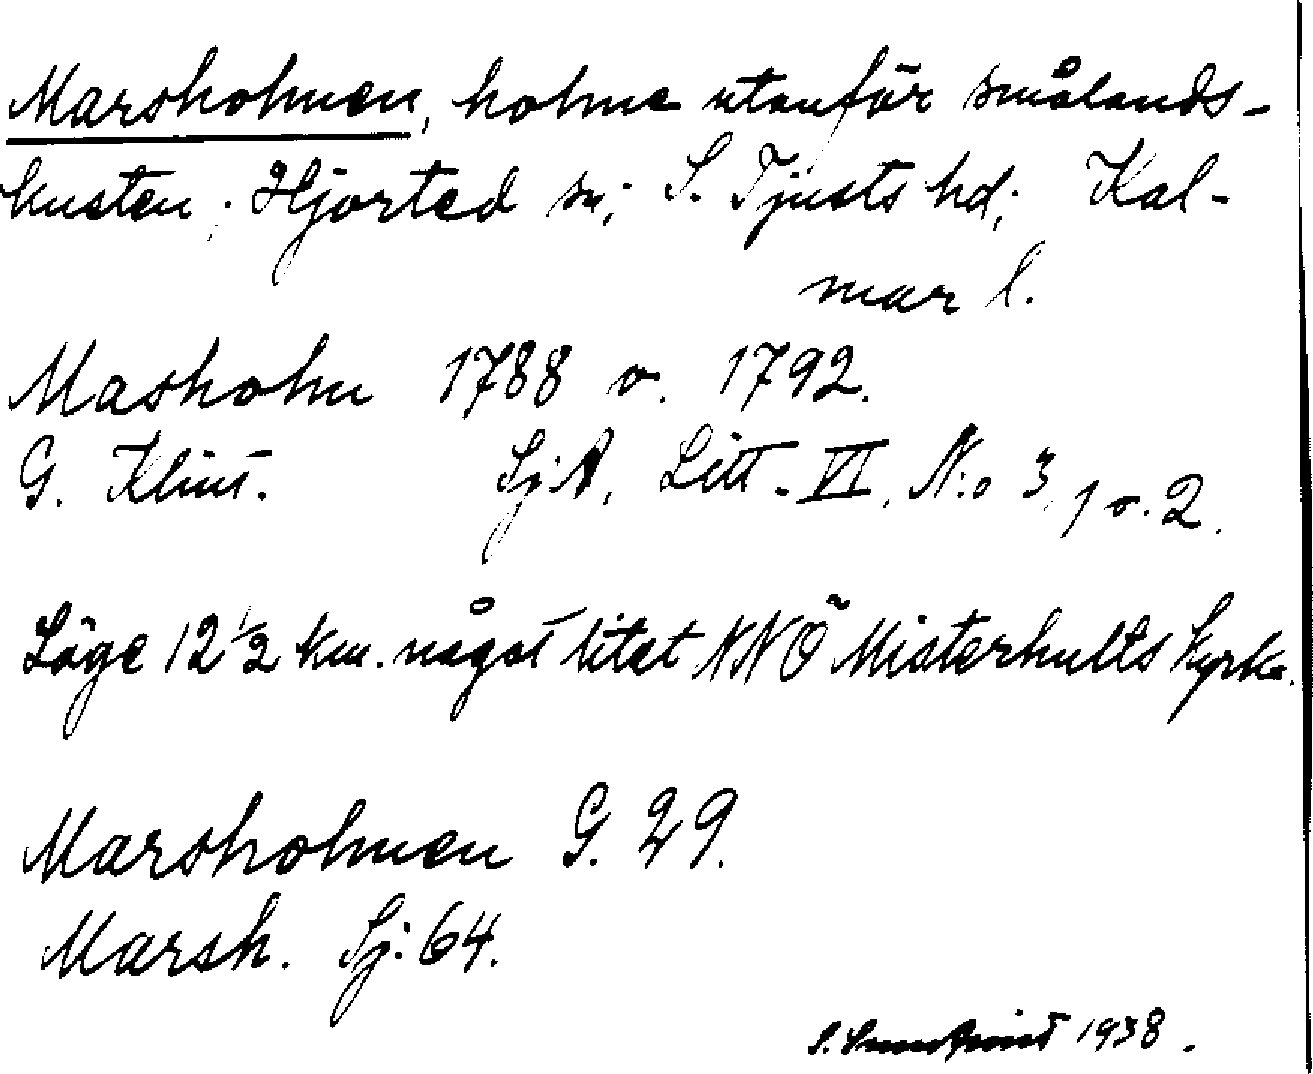 Marsholmen, holme utanför smålands-
kusten; Hjorted sn; S. Tjusts hd; Kal-
mar l.
Masholm 1788 o. 1792.
G. Klint. SjA, Litt. VI, N:o 3, 1 o. 2.
Läge 12 1/2 km. något litet NNÖ Misterhults kyrka.
Marsholmen G. 29.
Marsh. Sj: 64.
S. 1938.